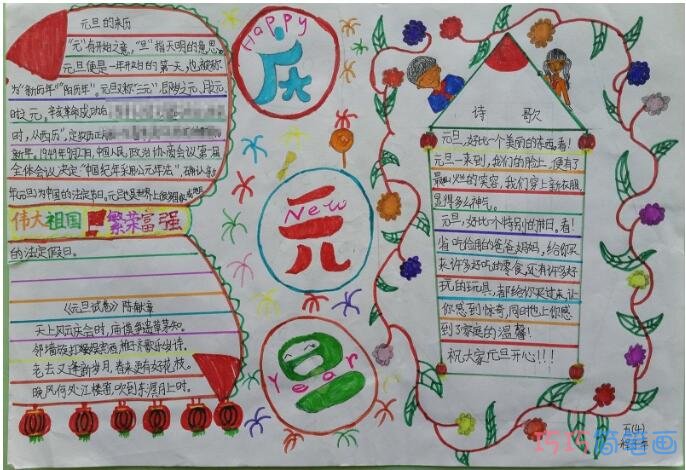 元旦的来历
"元"有开始之意,"旦"指天明的意思。
元旦便是一年开始的第一天,也被称
为"新历年""阳历年"。元旦又称"三元",即岁之元、月之元、
时之元。辛亥革命成功后
时,从西历",定农历正月
新年。1949年9月27日,中国人民政治协商会议第一届
全体会议决定"中国纪年采用公元年法",
元旦为中国的法定节日。元旦也是世界上
伟大祖国 繁荣富强
的法定假日。
《元旦试卷》 陈献章
天上风云庆会时,庙谟争遣草茅知。
邻墙旋打娱宾酒,稚子齐歌乐岁诗。
老去又逢新岁月,春来更有好花枝。
晚风何处江楼笛,吹到东溟月上时。
Happy
庆
New
元
Year
旦
诗 歌
元旦,好比一个美丽的东西,看!
元旦一来到,我们的脸上,便有了
最灿烂的笑容,我们穿上新衣服,
显得多么神气。
元旦,好比一个特别的节日。看!
省吃俭用的爸爸妈妈,给你买
来许多好吃的零食,还有许多好
玩的玩具,都给你买过来,让
你感到惊奇,同时也让你感
到了家庭的温馨!
祝大家元旦开心!!!
五(4)
巧巧简笔画